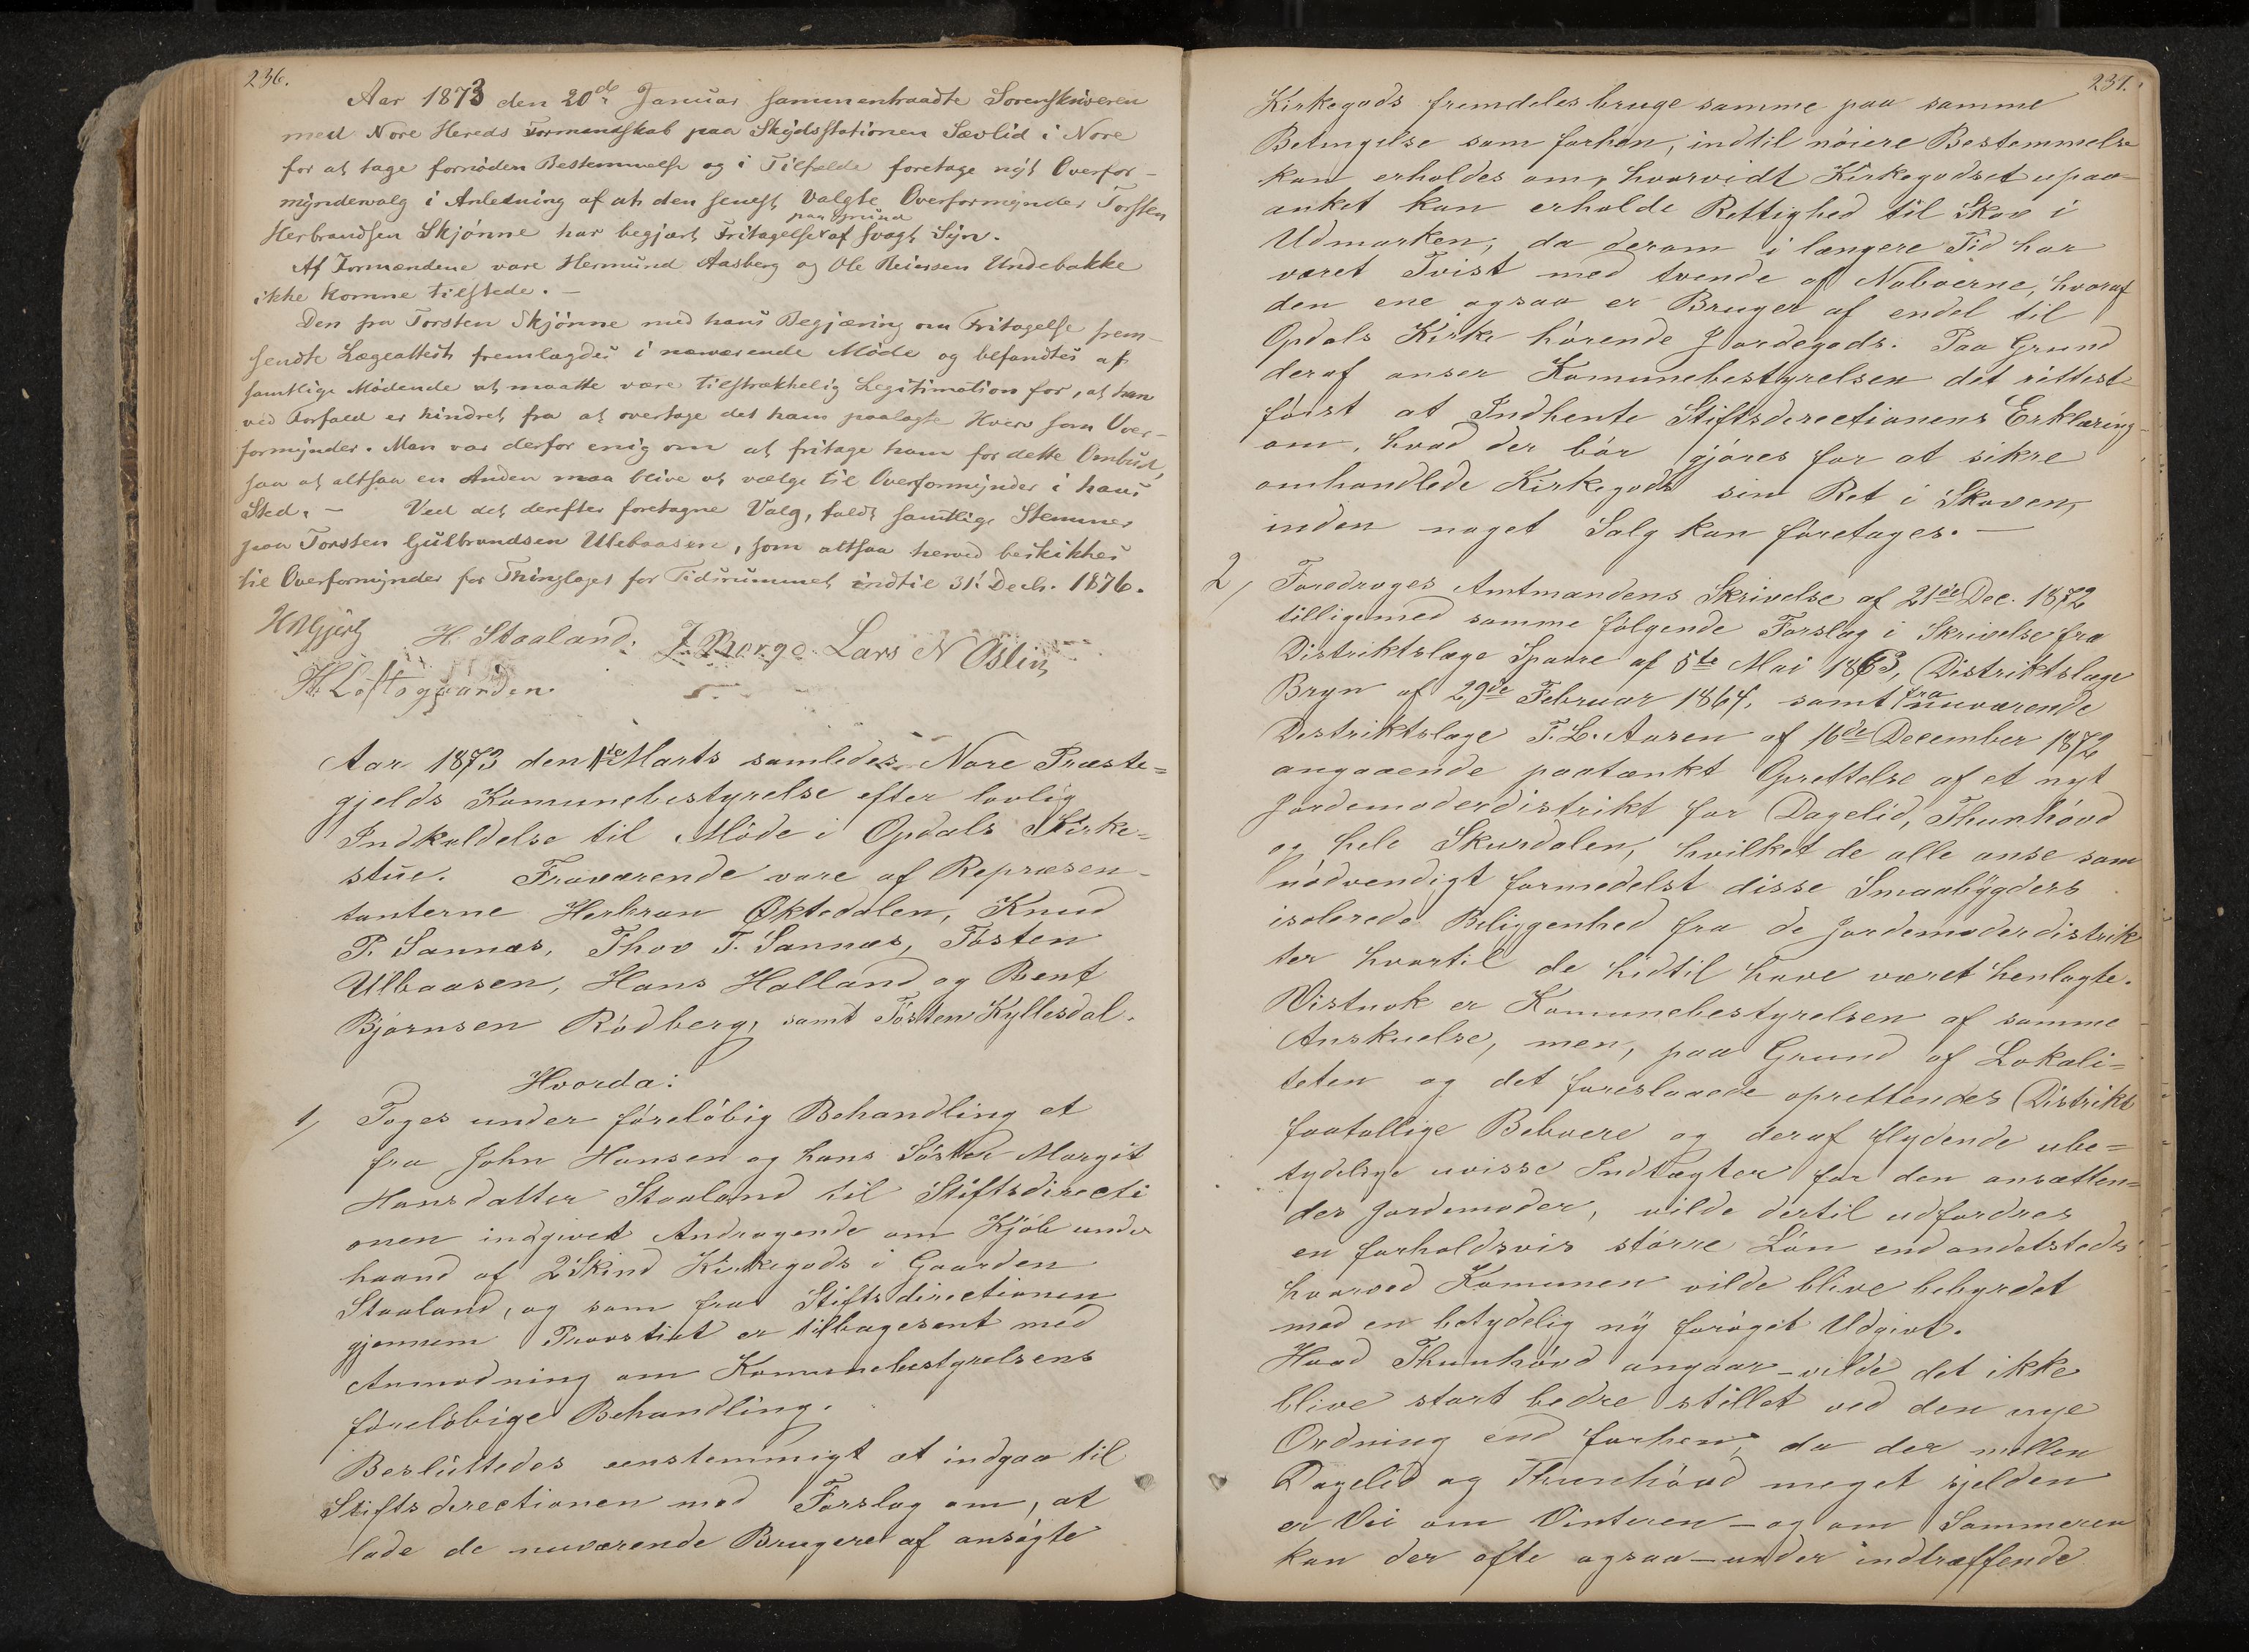 236.
Aar 1873 den 20de Januar sammentraadte Sorenskriveren
med Nore Hereds Formandskab paa Skydsstationen Sævlid i Nore
for at tage fornöden Bestemmelse og i Tilfælde foretage nyt Overfor-
myndervalg i Anledning af at den senest valgte Overformynder Torsten
paa Grund
Herbrandsen Skjønne har begjært Fritagelse af svagt Syn.
Af Formændene vare Hermund Aasberg og Ole Reiersen Undebakke
ikke komne tilstede. –
Den fra Torsten Skjönne med hans Begjæring om Fritagelse frem-
sendte Lægeattest fremlagdes i nærværende Möde og befandtes af
samtlige Mödende at maatte være tilstrækkelig Legitimation for, at han
ved Forfald er hindret fra at overtage det ham paalagte Hverv som Over-
formynder. Man var derfor enig om at fritage ham for dette Ombud,
saa at altsaa en Anden maa blive at vælge til Overformynder i hans
Sted. – Ved det derefter foretagne Valg, faldt samtlige Stemmer
paa Torsten Gulbrandsen Ulebaasen, som altsaa herved beskikkes
til Overformynder for Thinglaget for Tidsrummet indtil 31. Decb. 1876.
H. Staaland. J. Borge. Lars N Östlin
H. Loftsgaarden.
Aar 1873 den 1ste Marts samledes Nore Præste=
gjelds Komunebestyrelse efter lovlig
Indkaldelse til Möde i Opdals Kirke=
stue. Fraværende vare af Repræsen-
tanterne Herbran Øktedalen, Knud
P. Sannæs, Thov T. Sannæs, Tosten
Ulbaasen, Hans Halland og Bent
Bjørnsen Rödberg, samt Tosten Kyllesdal.
Hvorda:
1/ Toges under föreløbig Behandling et
fra John Hansen og hans Söster Margit
Hansdatter Staaland til Stiftsdirecti
onen indgivet Andragende om Kjöb under
haand af 2 Skind Kirkegods i Gaarden
Staaland, og som fra Stiftsdirectionen
gjennem Provstiet er tilbagesent med
Anmodning om Komunebestyrelsens
föreløbige Behandling.
Besluttedes eenstemmigt at indgaa til
Stiftsdirectionen med Forslag om, at
lade de nuværende Brugere af ansøgte
237.
Kirkegods fremdeles bruge samme paa samme
Betingelse som forhen, indtil nöiere Bestemmelse
kan erholdes om, hvorvidt Kirkegodset upaa-
anket kan erholde Rettighed til Skov i
Udmarken, da derom i længere Tid har
været Tvist med tvende af Naboerne, hvoraf
den ene ogsaa er Bruger af endel til
Opdals Kirke hörende Jordegods. Paa Grund
deraf anser Komunebestyrelsen det rettest
först at Indhente Stiftsdirectionens Erklæring
om, hvad der bör gjöres for at sikre
omhandlede Kirkegods sin Ret i Skoven,
inden noget Salg kan företages. –
2/ Foredroges Amtmandens Skrivelse af 21de Dec. 1872
tilligemed samme fölgende Forslag i Skrivelse fra
Distriktslæge Sparre af 5te Mai 1863, Distriktslæge
Bryn af 29de Februar 1864, samt fra nuværende
Distriktslæge T. L. Aaren af 16de December 1872
angaaende paatænkt Oprettelse af et nyt
Jordemoderdistrikt for Dagelid, Thunhövd
og hele Skurdalen, hvilket de alle anse som
nödvendigt formedelst disse Smaabygders
isolerede Beliggenhed fra de Jordemoderdistrik
ter hvortil de hidtil have været henlagte.
Vistnok er Komunebestyrelsen af samme
Anskuelse, men, paa Grund af Lokali=
teten og det foreslaaede oprettendes Distrikt
faatallige Beboere og deraf flydende ube=
tydelige uvisse Indtægter for den ansætten=
des Jordemoder, vilde dertil udfordres
en forholdsvis större Lön end andetsteds
hvorved Komunen vilde blive bebyrdet
med en betydelig ny forøget Udgivt.
Hvad Thunhövd angaar – vilde det ikke
blive stort bedre stillet ved den nye
Ordning end forhen, da der mellem
Dagelid og Thunhövd meget sjelden
er Vei om Vinteren – og om Sommeren
kan der ofte ogsaa – under indtræffende